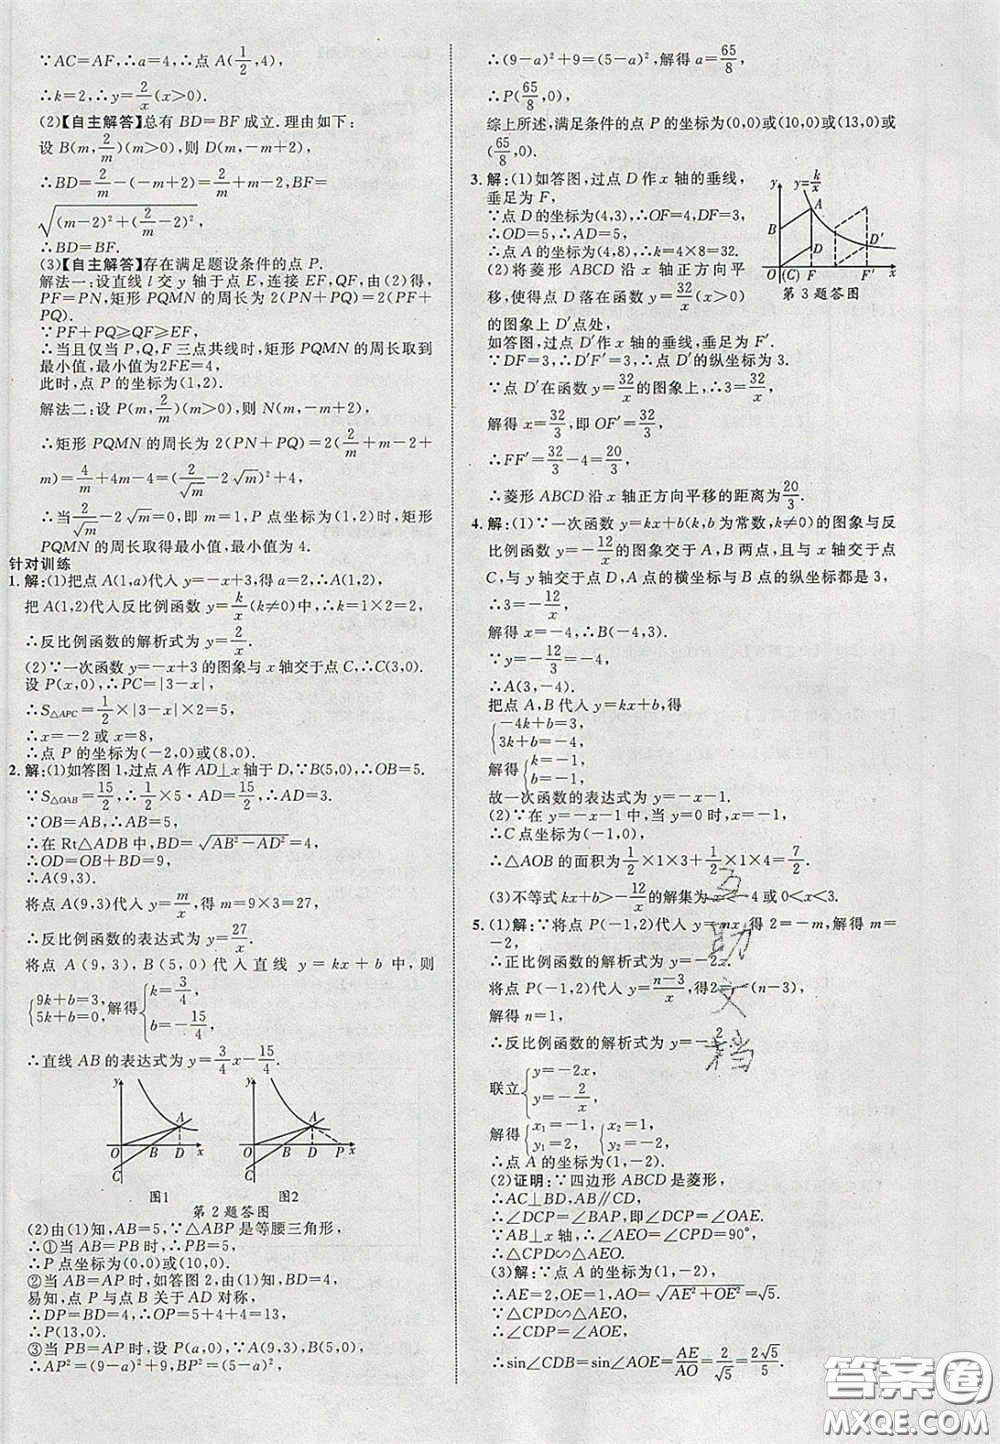 ∵AC=AF,∴a=4,∴点 A(1/2,4),
∴k=2,∴y=2/x(x>0).
(2)【自主解答】总有 BD=BF 成立.理由如下:
设 B(m,2/m)(m>0),则 D(m,-m+2),
∴BD=2/m-(-m+2)=2/m+m-2,BF=
√((m-2)²+(2/m-2)²),
∴BD=BF.
(3)【自主解答】存在满足题设条件的点 P.
解法一:设直线 l 交 y 轴于点 E,连接 EF,QF,由(2)得,
PF=PN,矩形 PQMN 的周长为 2(PN+PQ)=2(PF+
PQ).
∵PF+PQ≥QF≥EF,
∴当且仅当 P,Q,F 三点共线时,矩形 PQMN 的周长取到
最小值,最小值为2FE=4,
此时,点 P 的坐标为(1,2).
解法二:设 P(m,2/m)(m>0),则 N(m,-m+2),
∴矩形 PQMN 的周长为 2(PN+PQ)=2(2/m+m-2+
m)=4/m+4m-4=(2/√m-2√m)²+4,
∴当2/√m-2√m=0,即m=1,P点坐标为(1,2)时,矩形
PQMN 的周长取得最小值,最小值为 4.
针对训练
1.解:(1)把点 A(1,a)代入 y=-x+3,得 a=2,∴A(1,2),
把 A(1,2)代入反比例函数 y=k/x(k≠0)中,∴k=1×2=2,
∴反比例函数的解析式为 y=2/x.
(2)∵一次函数 y=-x+3 的图象与 x 轴交于点 C,∴C(3,0).
设 P(x,0),∴PC=|3-x|,
∴S△APC=1/2×|3-x|×2=5,
∴x=-2 或 x=8,
∴点 P 的坐标为(-2,0)或(8,0).
2.解:(1)如答图 1,过点 A 作 AD⊥x 轴于 D,∵B(5,0),∴OB=5.
∵S△OAB=15/2,∴1/2×5·AD=15/2,∴AD=3.
∵OB=AB,∴AB=5,
∴在 Rt△ADB 中,BD=√(AB²-AD²)=4,
∴OD=OB+BD=9,
∴A(9,3).
将点 A(9,3)代入 y=m/x,得 m=9×3=27,
∴反比例函数的表达式为 y=27/x.
将点 A(9,3),B(5,0)代入直线 y=kx+b 中,则
{9k+b=3, 5k+b=0, 解得{k=3/4, b=-15/4,
∴直线 AB 的表达式为 y=3/4x-15/4.
y A O B D x C
y A O B D P x C
图1 图2
第 2 题答图
(2)由(1)知,AB=5,∵△ABP 是等腰三角形,
∴①当 AB=PB 时,∴PB=5,
∴P 点坐标为(0,0)或(10,0).
②当 AB=AP 时,如答图 2,由(1)知,BD=4,
易知,点 P 与点 B 关于 AD 对称,
∴DP=BD=4,∴OP=5+4+4=13,
∴P(13,0).
③当 PB=AP 时,设 P(a,0),∵A(9,3),B(5,0),
∴AP²=(9-a)²+9,BP²=(5-a)²,
∴(9-a)²+9=(5-a)²,解得 a=65/8,
∴P(65/8,0).
综上所述,满足条件的点 P 的坐标为(0,0)或(10,0)或(13,0)或
(65/8,0).
3.解:(1)如答图,过点 D 作 x 轴的垂线,
垂足为 F,
∵点 D 的坐标为(4,3),∴OF=4,DF=3,
∴OD=5,∴AD=5,
∴点 A 的坐标为(4,8),∴k=4×8=32.
(2)将菱形 ABCD 沿 x 轴正方向平
移,使得点 D 落在函数 y=32/x(x>0)
y y=k/x A B D D′ O (C) F F′ x
第 3 题答图
的图象上 D′点处,
如答图,过点 D′作 x 轴的垂线,垂足为 F′.
∵DF=3,∴D′F′=3,∴点 D′的纵坐标为 3.
∵点 D′在函数 y=32/x 的图象上,∴3=32/x,
解得 x=32/3,即 OF′=32/3,
∴FF′=32/3-4=20/3,
∴菱形 ABCD 沿 x 轴正方向平移的距离为20/3.
4.解:(1)∵一次函数 y=kx+b(k,b 为常数,k≠0)的图象与反
比例函数 y=-12/x的图象交于 A,B 两点,且与 x 轴交于点
C,与 y 轴交于点 D,A 点的横坐标与 B 点的纵坐标都是 3,
∴3=-12/x,
解得 x=-4,∴B(-4,3).
∵y=-12/3=-4,
∴A(3,-4).
把点 A,B 代入 y=kx+b,得
{-4k+b=3, 3k+b=-4,
解得{k=-1, b=-1,
故一次函数的表达式为 y=-x-1.
(2)∵在 y=-x-1 中,当 y=0 时,x=-1,
∴C 点坐标为(-1,0),
∴△AOB 的面积为1/2×1×3+1/2×1×4=7/2.
(3)不等式 kx+b>-12/x的解集为 x<-4 或 0<x<3.
5.(1)解:∵将点 P(-1,2)代入 y=mx,得 2=-m,解得 m=
-2,
∴正比例函数的解析式为 y=-2x.
将点 P(-1,2)代入 y=(n-3)/x,得2=-(n-3),
解得 n=1,
∴反比例函数的解析式为 y=-2/x.
联立{y=-2x, y=-2/x,
解得{x₁=-1, y₁=2, {x₂=1, y₂=-2,
∴点 A 的坐标为(1,-2).
(2)证明:∵四边形 ABCD 是菱形,
∴AC⊥BD,AB∥CD,
∴∠DCP=∠BAP,即∠DCP=∠OAE.
∵AB⊥x 轴,∴∠AEO=∠CPD=90°,
∴△CPD∽△AEO.
(3)解:∵点 A 的坐标为(1,-2),
∴AE=2,OE=1,AO=√(AE²+OE²)=√5.
∵△CPD∽△AEO,
∴∠CDP=∠AOE,
∴sin∠CDB=sin∠AOE=AE/AO=2/√5=2√5/5.
互助文档
答案圈
MXQE.COM